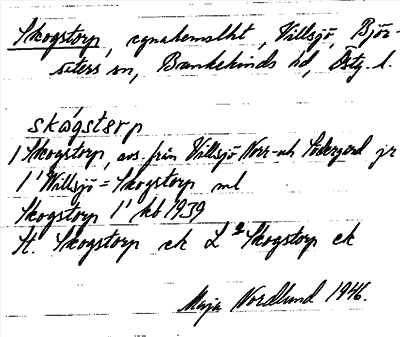 Skogstorp, egnahemslht, Villsjö, Björ-
säters sn, Bankekinds hd, Östg. l.
skógstorp
1 Skogstorp, avs. från Villsjö Norr- och Södergård jr
1' Willsjö = Skogstorp ml
Skogstorp 1' kb 1939
St. Skogstorp ek L:a Skogstorp ek
Maja Nordlund 1946.